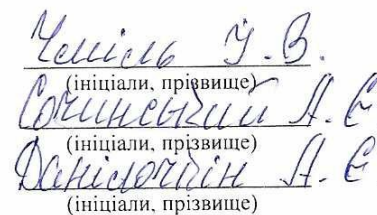 Чміль У. В.
(ініціали, прізвище)
Сочинський А. Є
(ініціали, прізвище)
Данілочкін А. Є
(ініціали, прізвище)